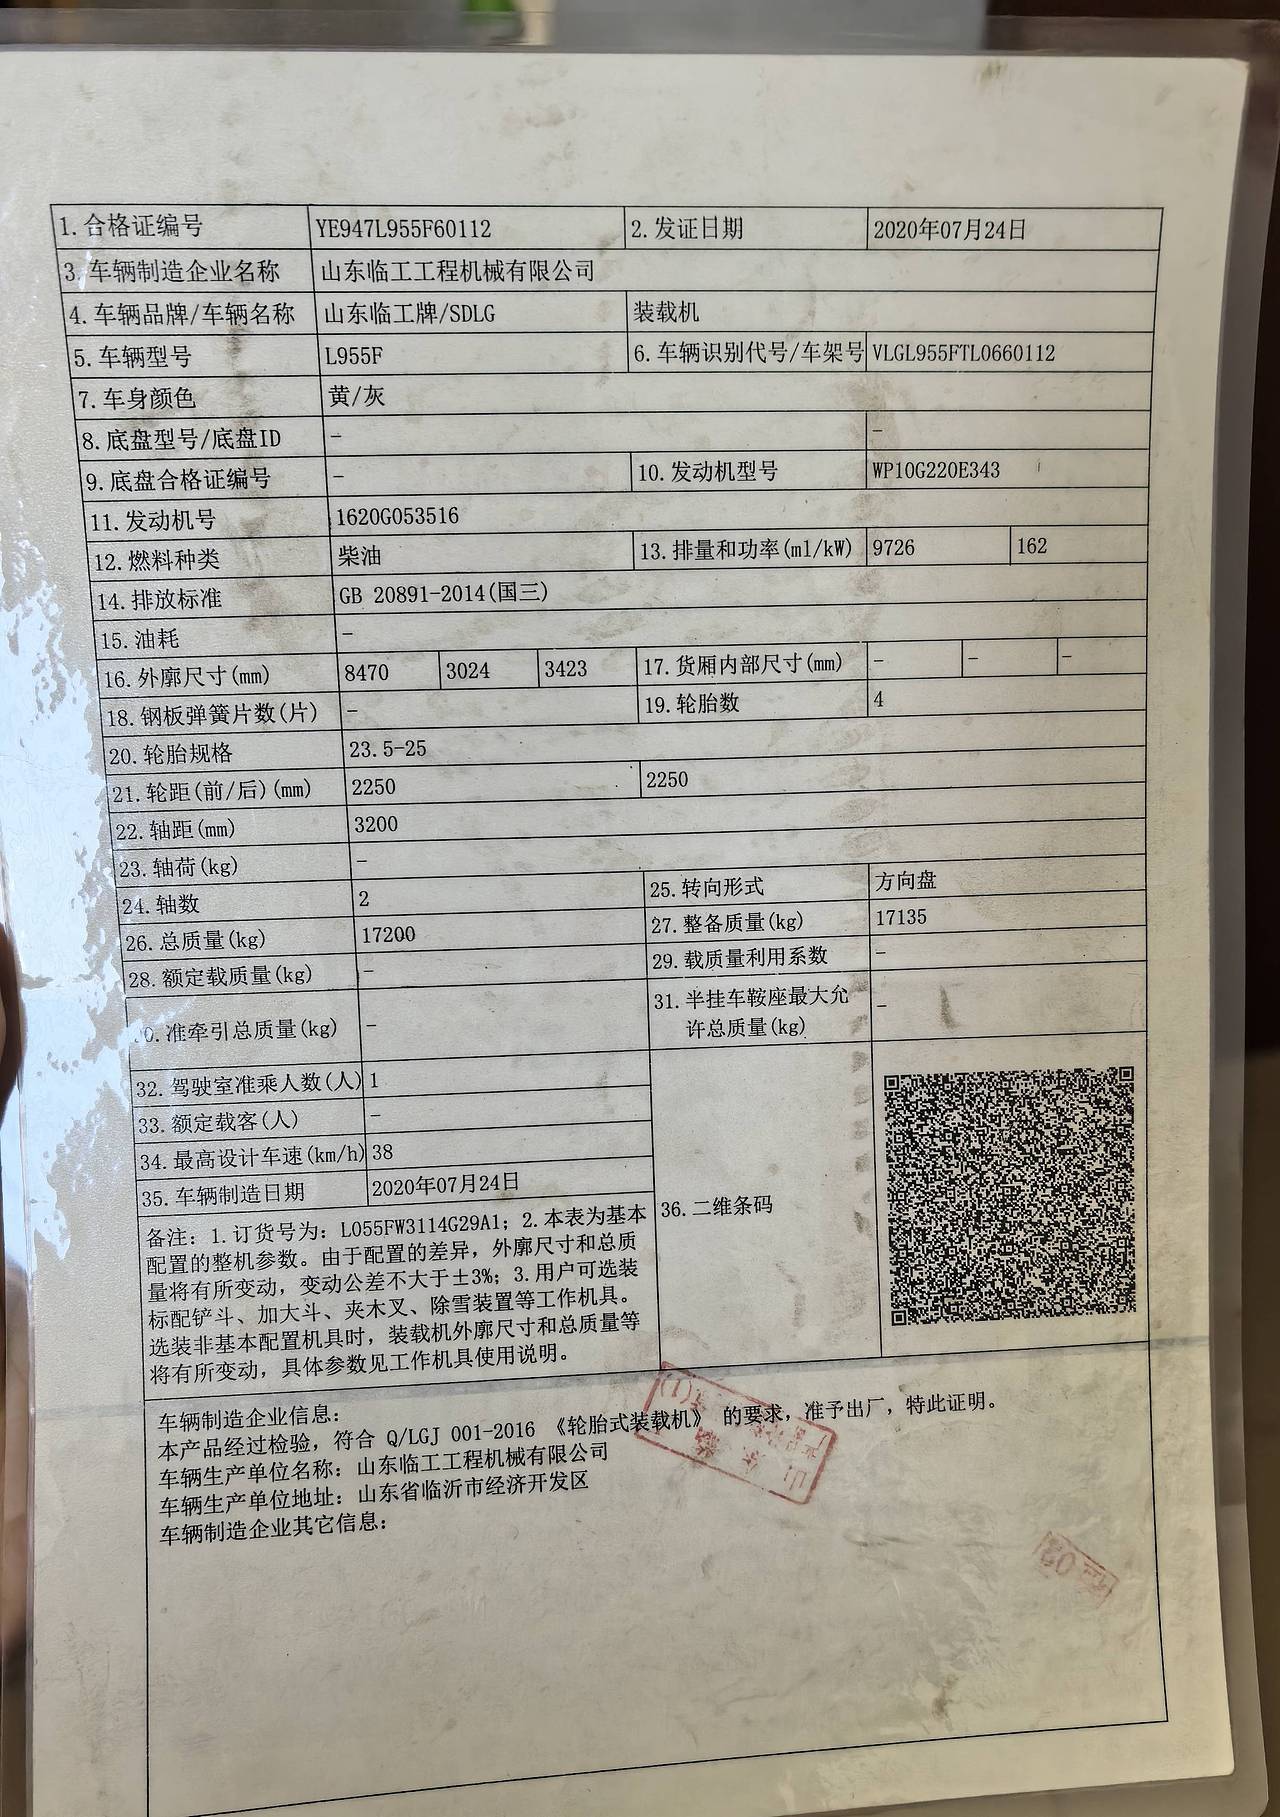 1.合格证编号 YE947L955F60112 2.发证日期 2020年07月24日
3.车辆制造企业名称 山东临工工程机械有限公司
4.车辆品牌/车辆名称 山东临工牌/SDLG 装载机
5.车辆型号 L955F 6.车辆识别代号/车架号 VLGL955FTL0660112
7.车身颜色 黄/灰
8.底盘型号/底盘ID - -
9.底盘合格证编号 - 10.发动机型号 WP10G220E343
11.发动机号 1620G053516
12.燃料种类 柴油 13.排量和功率(ml/kW) 9726 162
14.排放标准 GB 20891-2014(国三)
15.油耗 -
16.外廓尺寸(mm) 8470 3024 3423 17.货厢内部尺寸(mm) - - -
18.钢板弹簧片数(片) - 19.轮胎数 4
20.轮胎规格 23.5-25
21.轮距(前/后)(mm) 2250 2250
22.轴距(mm) 3200
23.轴荷(kg) -
24.轴数 2 25.转向形式 方向盘
26.总质量(kg) 17200 27.整备质量(kg) 17135
28.额定载质量(kg) - 29.载质量利用系数 -
0.准牵引总质量(kg) - 31.半挂车鞍座最大允
许总质量(kg) -
32.驾驶室准乘人数(人) 1
33.额定载客(人) -
34.最高设计车速(km/h) 38
35.车辆制造日期 2020年07月24日
36.二维条码
备注：1.订货号为：L055FW3114G29A1；2.本表为基本
配置的整机参数。由于配置的差异，外廓尺寸和总质
量将有所变动，变动公差不大于±3%；3.用户可选装
标配铲斗、加大斗、夹木叉、除雪装置等工作机具。
选装非基本配置机具时，装载机外廓尺寸和总质量等
将有所变动，具体参数见工作机具使用说明。
车辆制造企业信息：
本产品经过检验，符合 Q/LGJ 001-2016 《轮胎式装载机》 的要求，准予出厂，特此证明。
车辆生产单位名称：山东临工工程机械有限公司
车辆生产单位地址：山东省临沂市经济开发区
车辆制造企业其它信息：